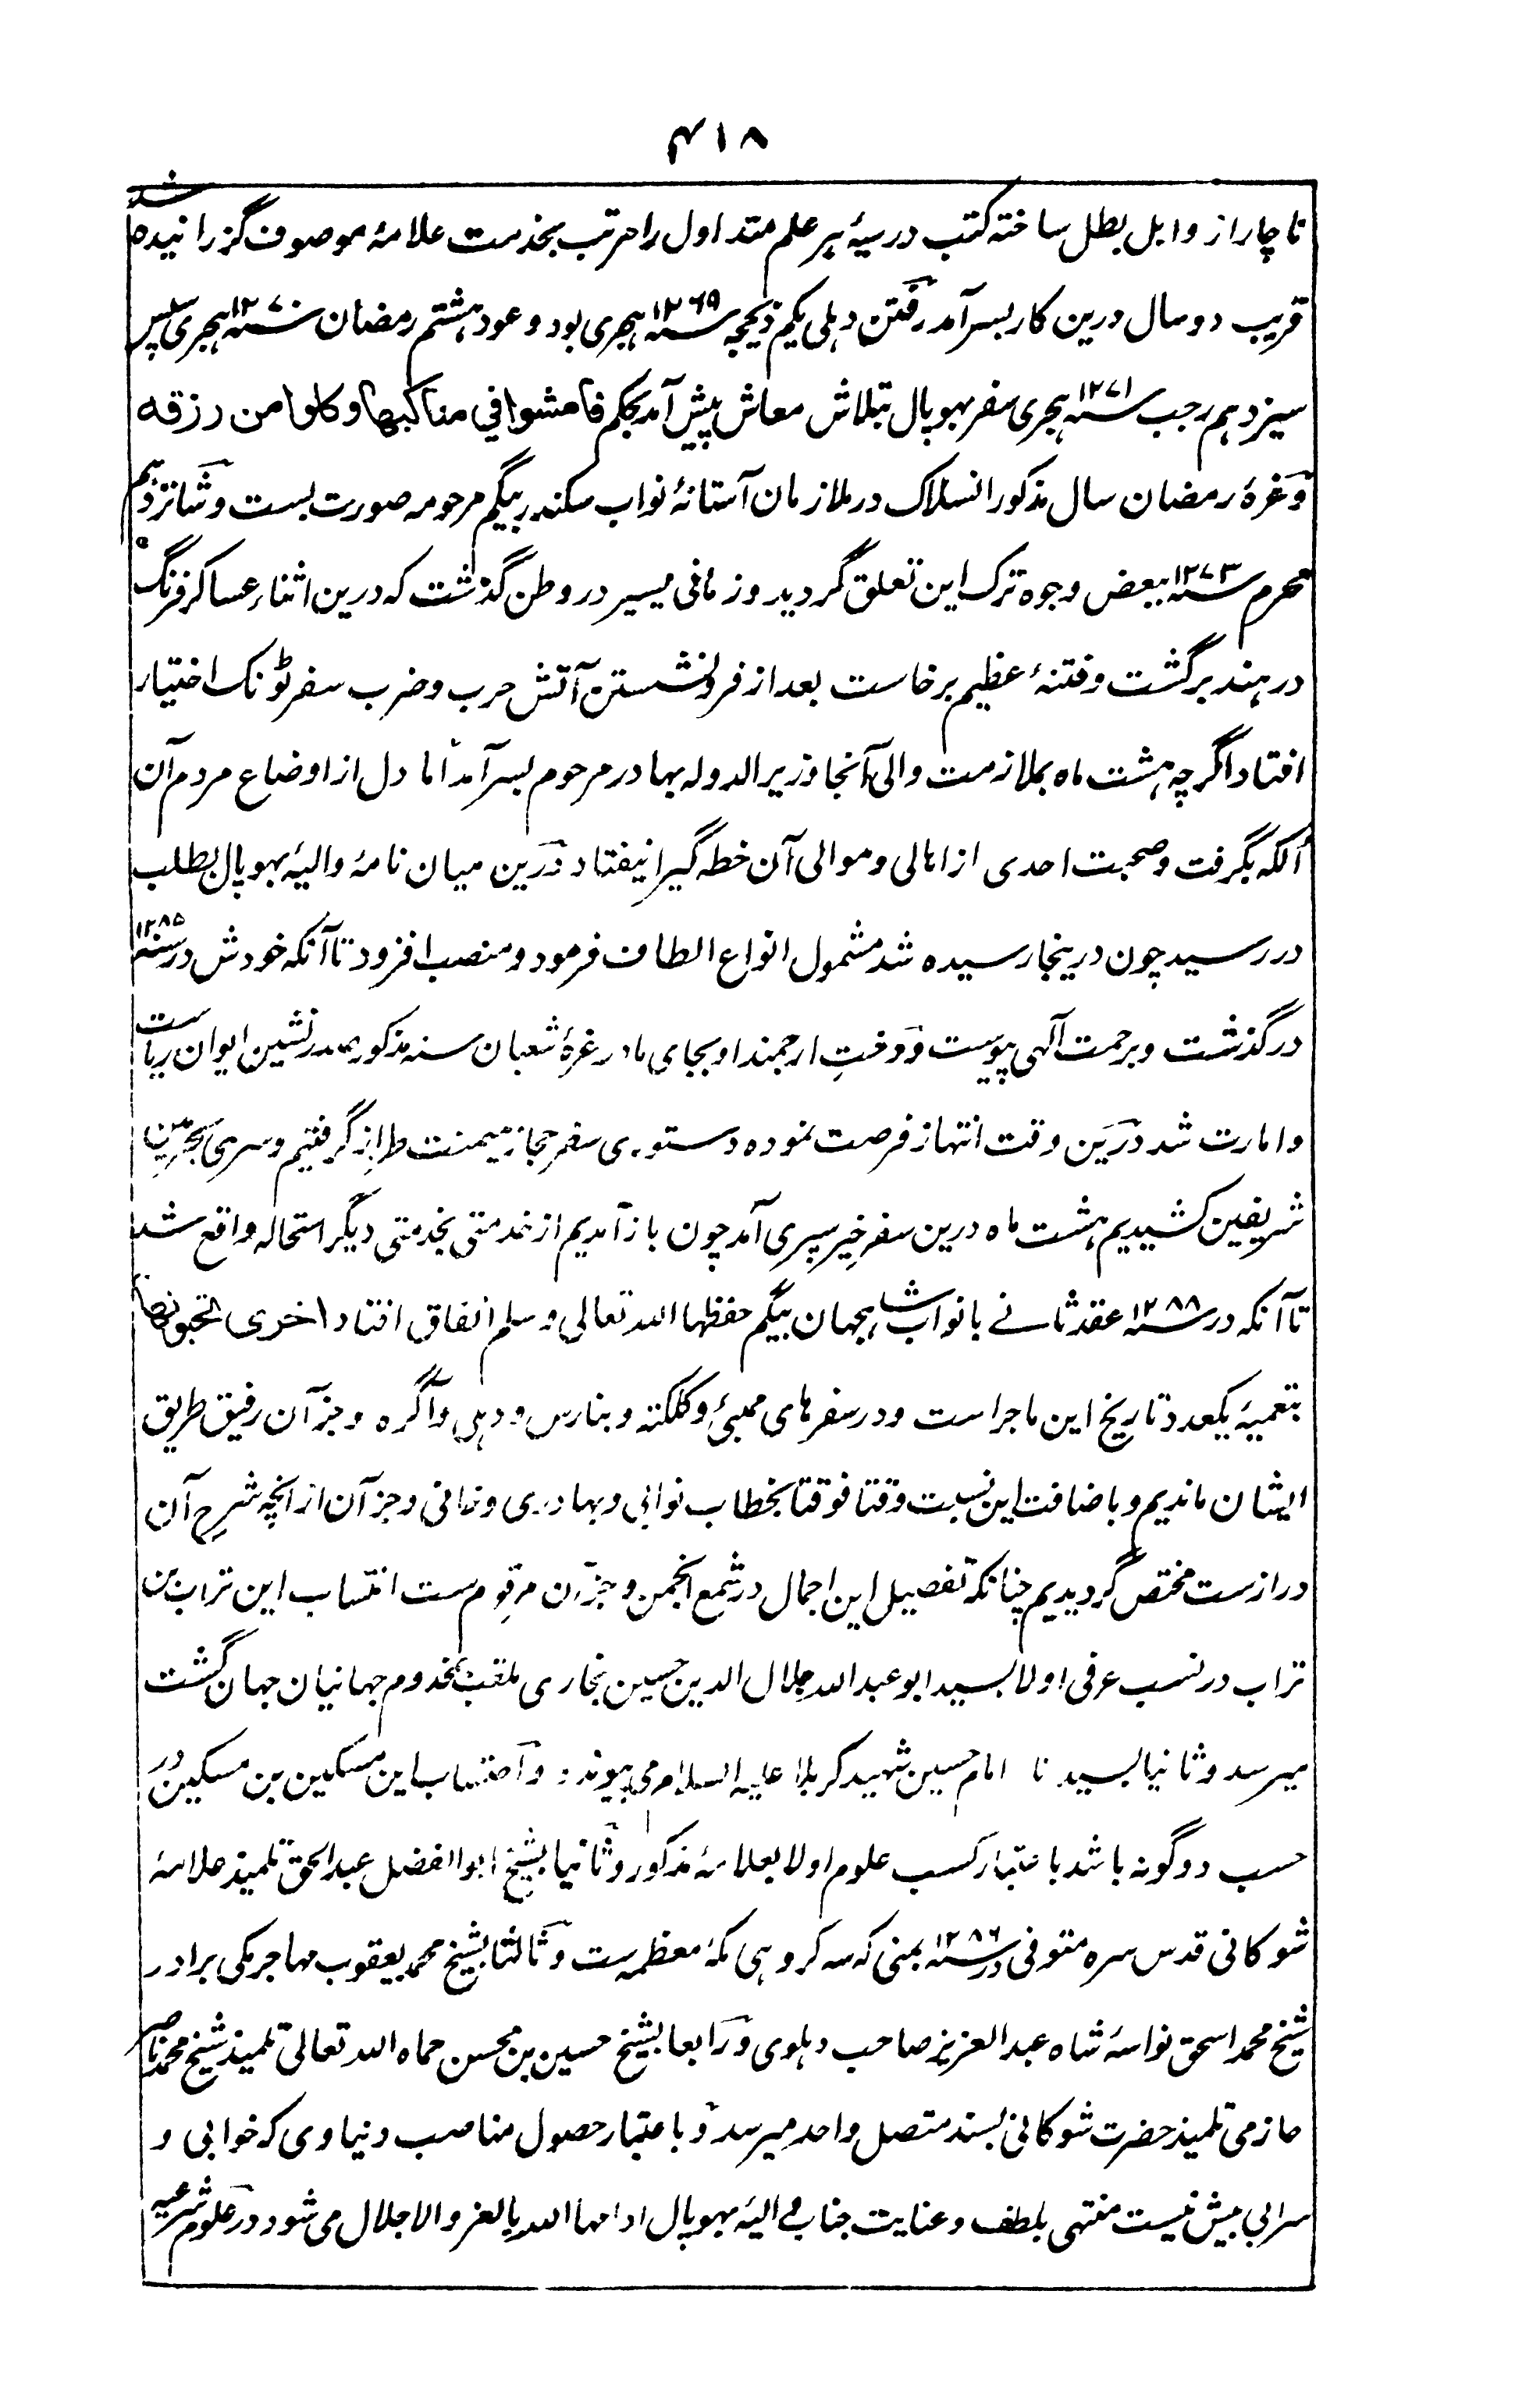 ۴۱۸
ناچار از وابل بطل ساخته کتب درسیهٔ هر علم متداول را مرتب بخدمت علامهٔ موصوف گزرانیده شد
قریب دو سال درین کار بسر آمد رفتن دهلی یکم ذیحجه سنه ۱۲۶۹ هجری بود و عود هشتم رمضان سنه ۱۲۷۰ هجری سپس
سیزدهم رجب سنه ۱۲۷۱ هجری سفر بهوپال بتلاش معاش پیش آمد بحکم فامشوا في مناکبها و کلوا من رزقه
و غرهٔ رمضان سال مذکور انسلاک در ملازمان آستانهٔ نواب سکندر بیگم مرحومه صورت بست و شانزدهم
محرم سنه ۱۲۷۳ ببعض وجوه ترک این تعلق گردید و زمانی یسیر در وطن گذشت که درین اثناء عساکر فرنگ
در هند برگشت و فتنهٔ عظیم برخاست بعد از فرونشستن آتش حرب و ضرب سفر ٹونک اختیار
افتاد اگرچه هشت ماه بملازمت والی آنجا وزیر الدوله بهادر مرحوم بسر آمد اما دل از اوضاع مردم آن
الکه بگرفت و صحبت احدی از اهالی و موالی آن خطه گیرا نیفتاد درین میان نامهٔ والیهٔ بهوپال بطلب
در رسید چون درینجا رسیده شد مشمول انواع الطاف فرمود و منصب افزود تا آنکه خودش در سنه ۱۲۸۵
درگذشت و برحمت آلهی پیوست و دخت ارجمند او بجای مادر غرهٔ شعبان سنه مذکور صدر نشین ایوان ریاست
و امارت شد درین وقت انتهاز فرصت نموده دستوری سفر حجاز میمنت طراز گرفتیم و سری بحرمین
شریفین کشیدیم هشت ماه درین سفر خیر سپری آمد چون باز آمدیم از خدمتی بخدمتی دیگر استحاله واقع شد
تا آنکه در سنه ۱۲۸۸ عقد ثانے با نواب شاهجهان بیگم حفظها الله تعالی و سلم اتفاق افتاد اخری تحبونها
بتعمیهٔ یکعدد تاریخ این ماجراست و در سفرهای ممبئی و کلکته و بنارس و دهلی و آگره و جز آن رفیق طریق
ایشان ماندیم و باضافت این نسبت وقتا فوقتا بخطاب نوابی و بهادری و خانی و جز آن از انچه شرح آن
درازست مختص گردیدیم چنانکه تفصیل این اجمال در شمع انجمن و جز آن مرقوم ست انتساب این تراب بن
تراب در نسب عرفی اولا بسید ابو عبد الله جلال الدین حسین بخاری ملقب بمخدوم جهانیان جهان گشت
میرسد و ثانیا بسیدنا امام حسین شهید کربلا علیه السلام می پیوندد و احتساب این مسکین بن مسکین در
حسب دوگونه باشد باعتبار کسب علوم اولا بعلامهٔ مذکور و ثانیا بشیخ ابو الفضل عبد الحق تلمیذ علامهٔ
شوکانی قدس سره متوفی در سنه ۱۲۸۶ بمنی که سه کروهی مکهٔ معظمه ست و ثالثا بشیخ محمد یعقوب مهاجر مکی برادر
شیخ محمد اسحق نواسهٔ شاه عبد العزیز صاحب دهلوی و رابعا بشیخ حسین بن محسن حماه الله تعالی تلمیذ شیخ محمد ناصر
حازمی تلمیذ حضرت شوکانی بسند متصل واحد میرسد و باعتبار حصول مناصب دنیاوی که خوابی و
سرابی بیش نیست منتهی بلطف و عنایت جناب والیهٔ بهوپال ادامها الله بالعز والاجلال می شود در علوم شرعیه